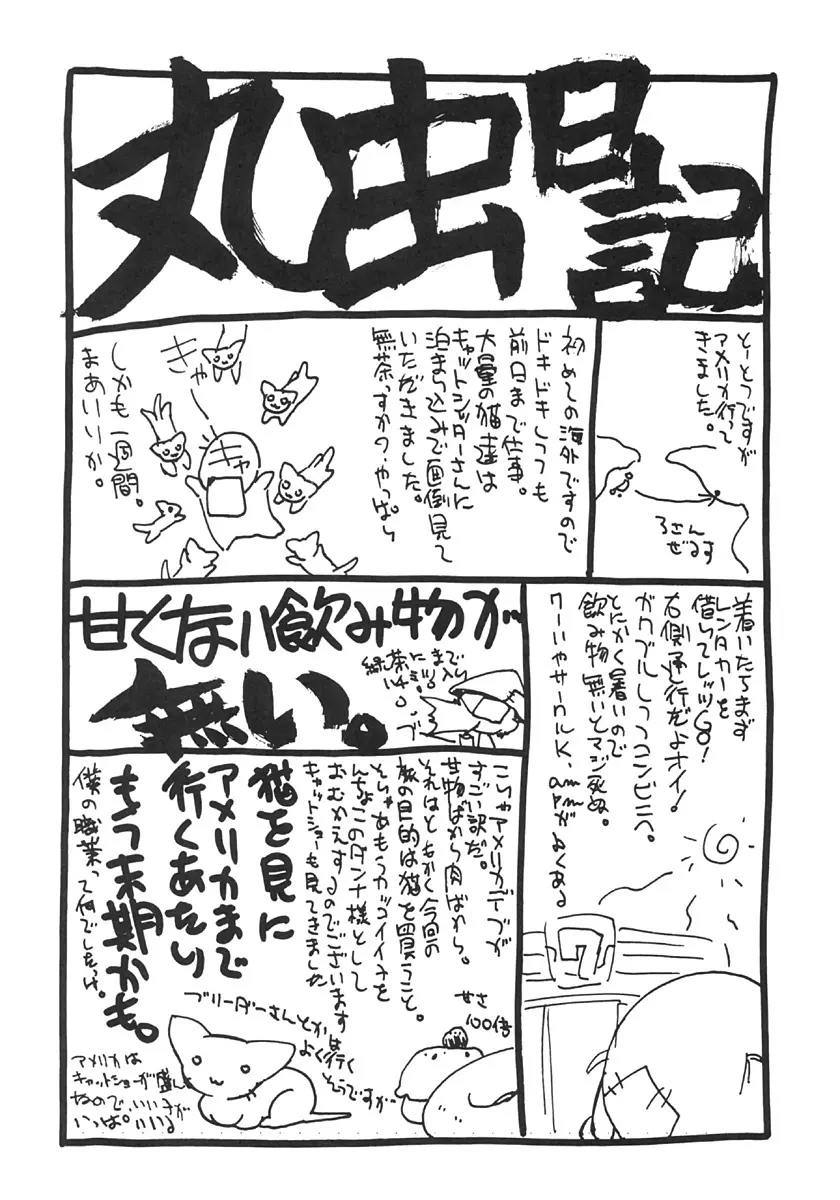 丸虫日記
とーとつですが
アメリカ行って
きました。
ろさん
ぜるす
初めての海外ですので
ドキドキしつつも
前日まで仕事。
大量の猫達は
キャットシッターさんに
泊まり込みで面倒見て
いただきました。
無茶っすかの、やっぱら
きゃー
キャ
しかも一週間。
まあいいか。
着いたらまず
レンタカーを
借りてレッツGO!
右側通行だよオイ!
ガクブルしつつコンビニへ。
とにかく暑いので
飲み物無いとマジ死ぬ。
ワーいやサークルK、ampmがよくある
7
甘くない飲み物が
無い。
緑茶にまで
ハチミツ入り
こりゃアメリカデブが
すごい訳だ。
甘物ばかり肉ばかり。
それはともかく今回の
旅の目的は猫を買うこと。
そりゃあもうカッコイイネを
んちょこのダンナ様として
おむかえするのでございます
キャットショーも見てきました
甘さ
100倍
猫を見に
アメリカまで
行くあたり
もう末期かも。
僕の職業って何でしたっけ。
ブリーダーさんとかは
よく行く
そうですが
アメリカは
キャットショーが盛ん
なので、いい子が
いっぱいいる